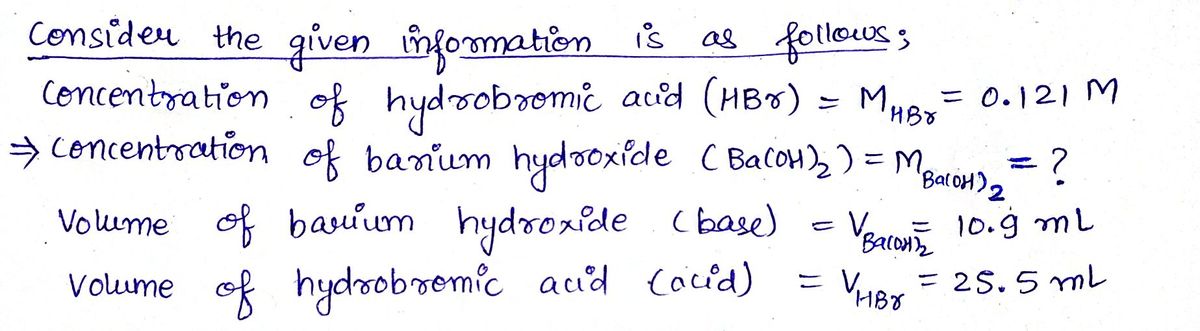 Consider the given information is as follows;
Concentration of hydrobromic acid (HBr) = M_HBr = 0.121 M
⇒ Concentration of barium hydroxide (Ba(OH)₂) = M_Ba(OH)₂ = ?
Volume of barium hydroxide (base) = V_Ba(OH)₂ = 10.9 mL
Volume of hydrobromic acid (acid) = V_HBr = 25.5 mL